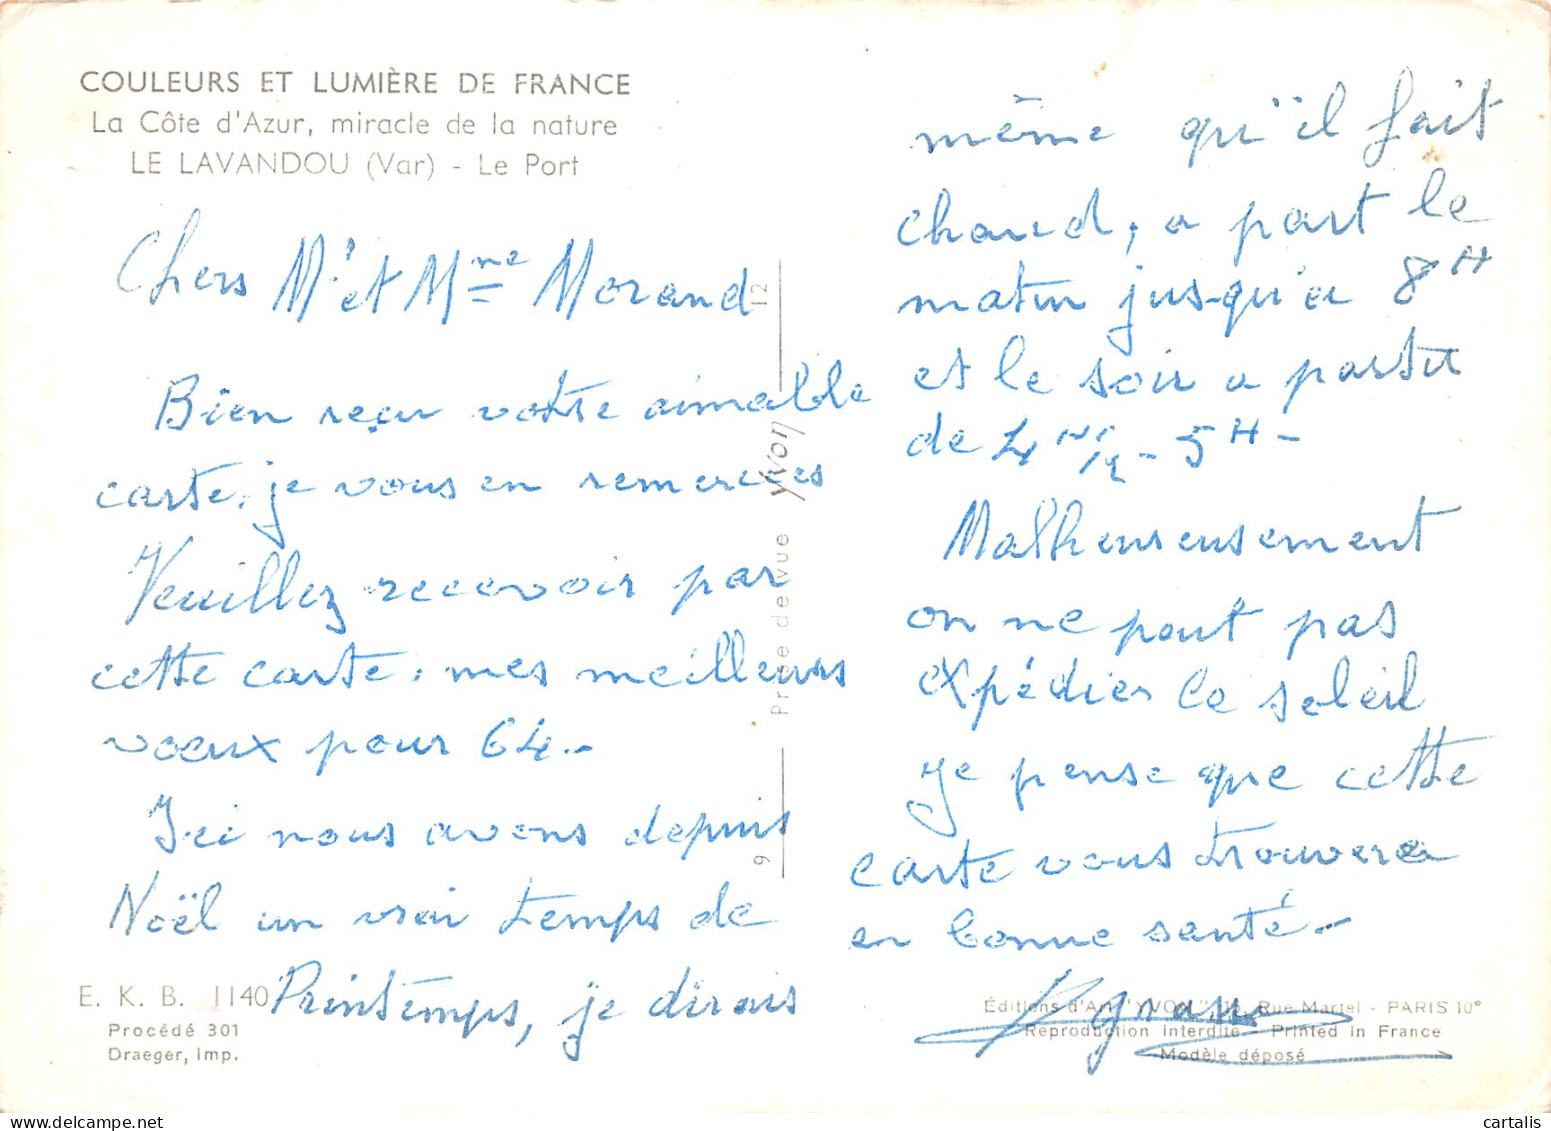 COULEURS ET LUMIÈRE DE FRANCE
La Côte d'Azur, miracle de la nature
LE LAVANDOU (Var) - Le Port
Chers Mr et Mme Morand
Bien reçu votre aimable
carte, je vous en remercies
Veuillez recevoir par
cette carte, mes meilleurs
voeux pour 64.-
Ici nous avons depuis
Noël un vrai temps de
Printemps, je dirais
même qu'il fait
chaud, a part le
matin jusqu'a 8H
et le soir a partir
de 4 H 1/2 - 5H -
Malheureusement
on ne peut pas
expédier le soleil
Je pense que cette
carte vous trouvera
en bonne santé -
12
Prise de vue Yvon
9
E. K. B. 1140
Procédé 301
Draeger, Imp.
Éditions d'Art "YVON", Rue Martel - PARIS 10e
Reproduction interdite - Printed in France
Modèle déposé
cartalis